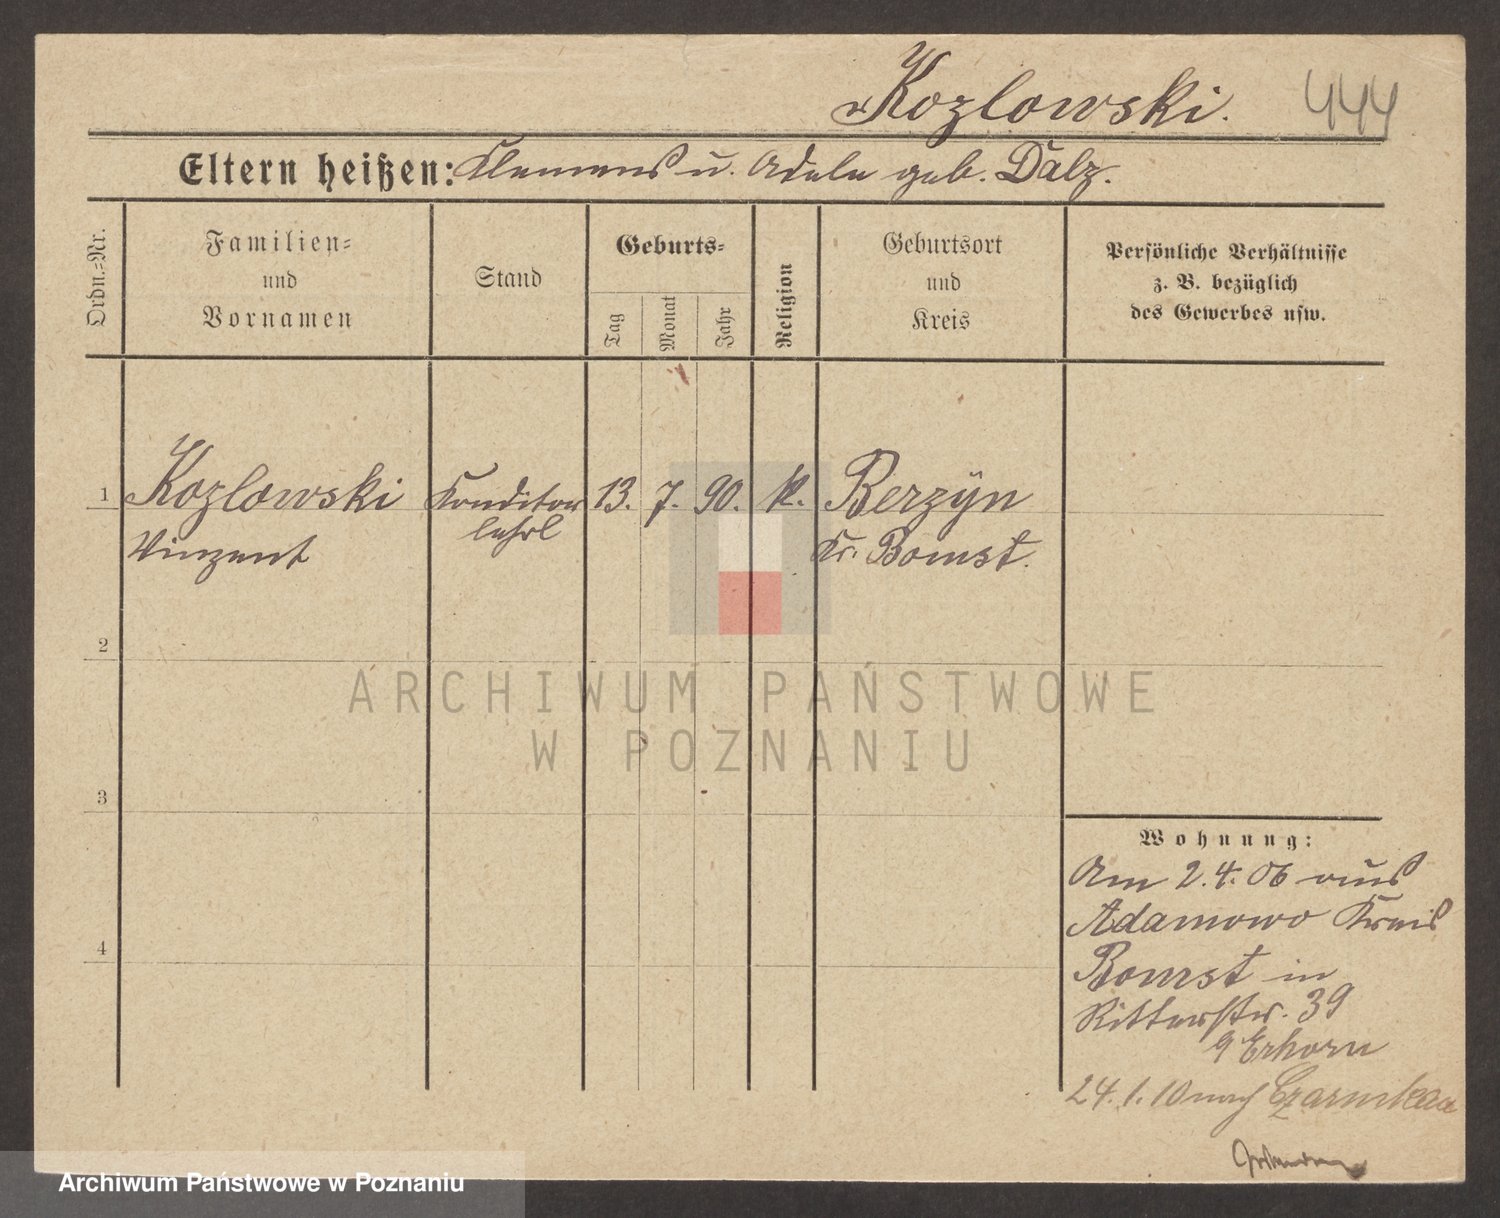 Kozlowski.
444
Eltern heißen: Klemens u. Adele geb. Dalz.
Ordn.=Nr.
Familien=
und
Vornamen
Stand
Geburts=
Tag
Monat
Jahr
Religion
Geburtsort
und
Kreis
Persönliche Verhältnisse
z. B. bezüglich
des Gewerbes usw.
1 Kozlowski Konditor 13. 7. 90. k. Berzÿn
Vinzent lehrl Kr. Bomst.
2
3
4
Wohnung:
Am 2.4.06 aus
Adamowo Kreis
Bomst in
Ritterstr. 39
24.1.10 nach Czarnikau
ARCHIWUM PAŃSTWOWE
W POZNANIU
Archiwum Państwowe w Poznaniu